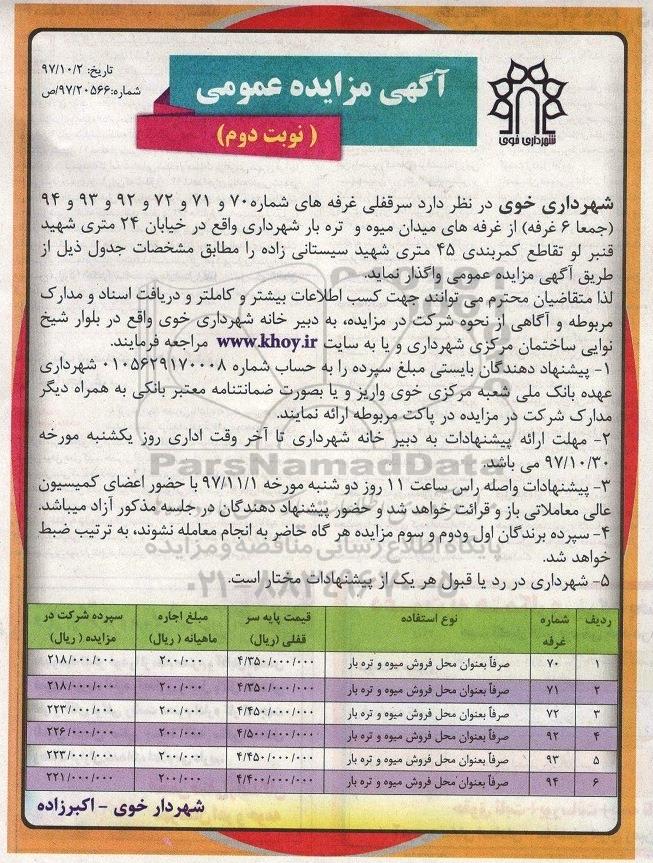 شهرداری خوی
تاریخ: ۹۷/۱۰/۲
شماره:۹۷/۲۰۵۶۶/ص
آگهی مزایده عمومی
( نوبت دوم)
شهرداری خوی در نظر دارد سرقفلی غرفه های شماره۷۰ و ۷۱ و ۷۲ و ۹۲ و ۹۳ و ۹۴
(جمعا ۶ غرفه) از غرفه های میدان میوه و تره بار شهرداری واقع در خیابان ۲۴ متری شهید
قنبر لو تقاطع کمربندی ۴۵ متری شهید سیستانی زاده را مطابق مشخصات جدول ذیل از
طریق آگهی مزایده عمومی واگذار نماید.
لذا متقاضیان محترم می توانند جهت کسب اطلاعات بیشتر و کاملتر و دریافت اسناد و مدارک
مربوطه و آگاهی از نحوه شرکت در مزایده، به دبیر خانه شهرداری خوی واقع در بلوار شیخ
نوایی ساختمان مرکزی شهرداری و یا به سایت www.khoy.ir مراجعه فرمایند.
۱- پیشنهاد دهندگان بایستی مبلغ سپرده را به حساب شماره ۰۱۰۵۶۲۹۱۷۰۰۰۸ شهرداری
عهده بانک ملی شعبه مرکزی خوی واریز و یا بصورت ضمانتنامه معتبر بانکی به همراه دیگر
مدارک شرکت در مزایده در پاکت مربوطه ارائه نمایند.
۲- مهلت ارائه پیشنهادات به دبیر خانه شهرداری تا آخر وقت اداری روز یکشنبه مورخه
۹۷/۱۰/۳۰ می باشد.
۳- پیشنهادات واصله راس ساعت ۱۱ روز دو شنبه مورخه ۹۷/۱۱/۱ با حضور اعضای کمیسیون
عالی معاملاتی باز و قرائت خواهد شد و حضور پیشنهاد دهندگان در جلسه مذکور آزاد میباشد.
۴- سپرده برندگان اول ودوم و سوم مزایده هر گاه حاضر به انجام معامله نشوند، به ترتیب ضبط
خواهد شد.
۵- شهرداری در رد یا قبول هر یک از پیشنهادات مختار است.
ParsNamadData
پایگاه اطلاع رسانی مناقصه و مزایده
ردیف شماره غرفه نوع استفاده قیمت پایه سر قفلی (ریال) مبلغ اجاره ماهیانه ( ریال) سپرده شرکت در مزایده ( ریال)
۱ ۷۰ صرفاً بعنوان محل فروش میوه و تره بار ۴/۳۵۰/۰۰۰/۰۰۰ ۲۰۰/۰۰۰ ۲۱۸/۰۰۰/۰۰۰
۲ ۷۱ صرفاً بعنوان محل فروش میوه و تره بار ۴/۳۵۰/۰۰۰/۰۰۰ ۲۰۰/۰۰۰ ۲۱۸/۰۰۰/۰۰۰
۳ ۷۲ صرفاً بعنوان محل فروش میوه و تره بار ۴/۴۵۰/۰۰۰/۰۰۰ ۲۰۰/۰۰۰ ۲۲۳/۰۰۰/۰۰۰
۴ ۹۲ صرفاً بعنوان محل فروش میوه و تره بار ۴/۵۰۰/۰۰۰/۰۰۰ ۲۰۰/۰۰۰ ۲۲۶/۰۰۰/۰۰۰
۵ ۹۳ صرفاً بعنوان محل فروش میوه و تره بار ۴/۴۵۰/۰۰۰/۰۰۰ ۲۰۰/۰۰۰ ۲۲۳/۰۰۰/۰۰۰
۶ ۹۴ صرفاً بعنوان محل فروش میوه و تره بار ۴/۴۰۰/۰۰۰/۰۰۰ ۲۰۰/۰۰۰ ۲۲۱/۰۰۰/۰۰۰
شهردار خوی - اکبرزاده